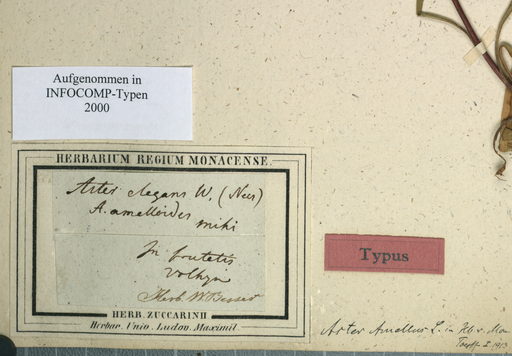 Aufgenommen in
INFOCOMP-Typen
2000
HERBARIUM REGIUM MONACENSE.
Aster elegans W. (Nees)
A. amelloides mihi
In frutetis
Volhyn
Herb. W. Besser
HERB. ZUCCARINII
Herbar. Univ. Ludov. Maximil.
Typus
Aster Amellus L. in Hb v. Mon
1913